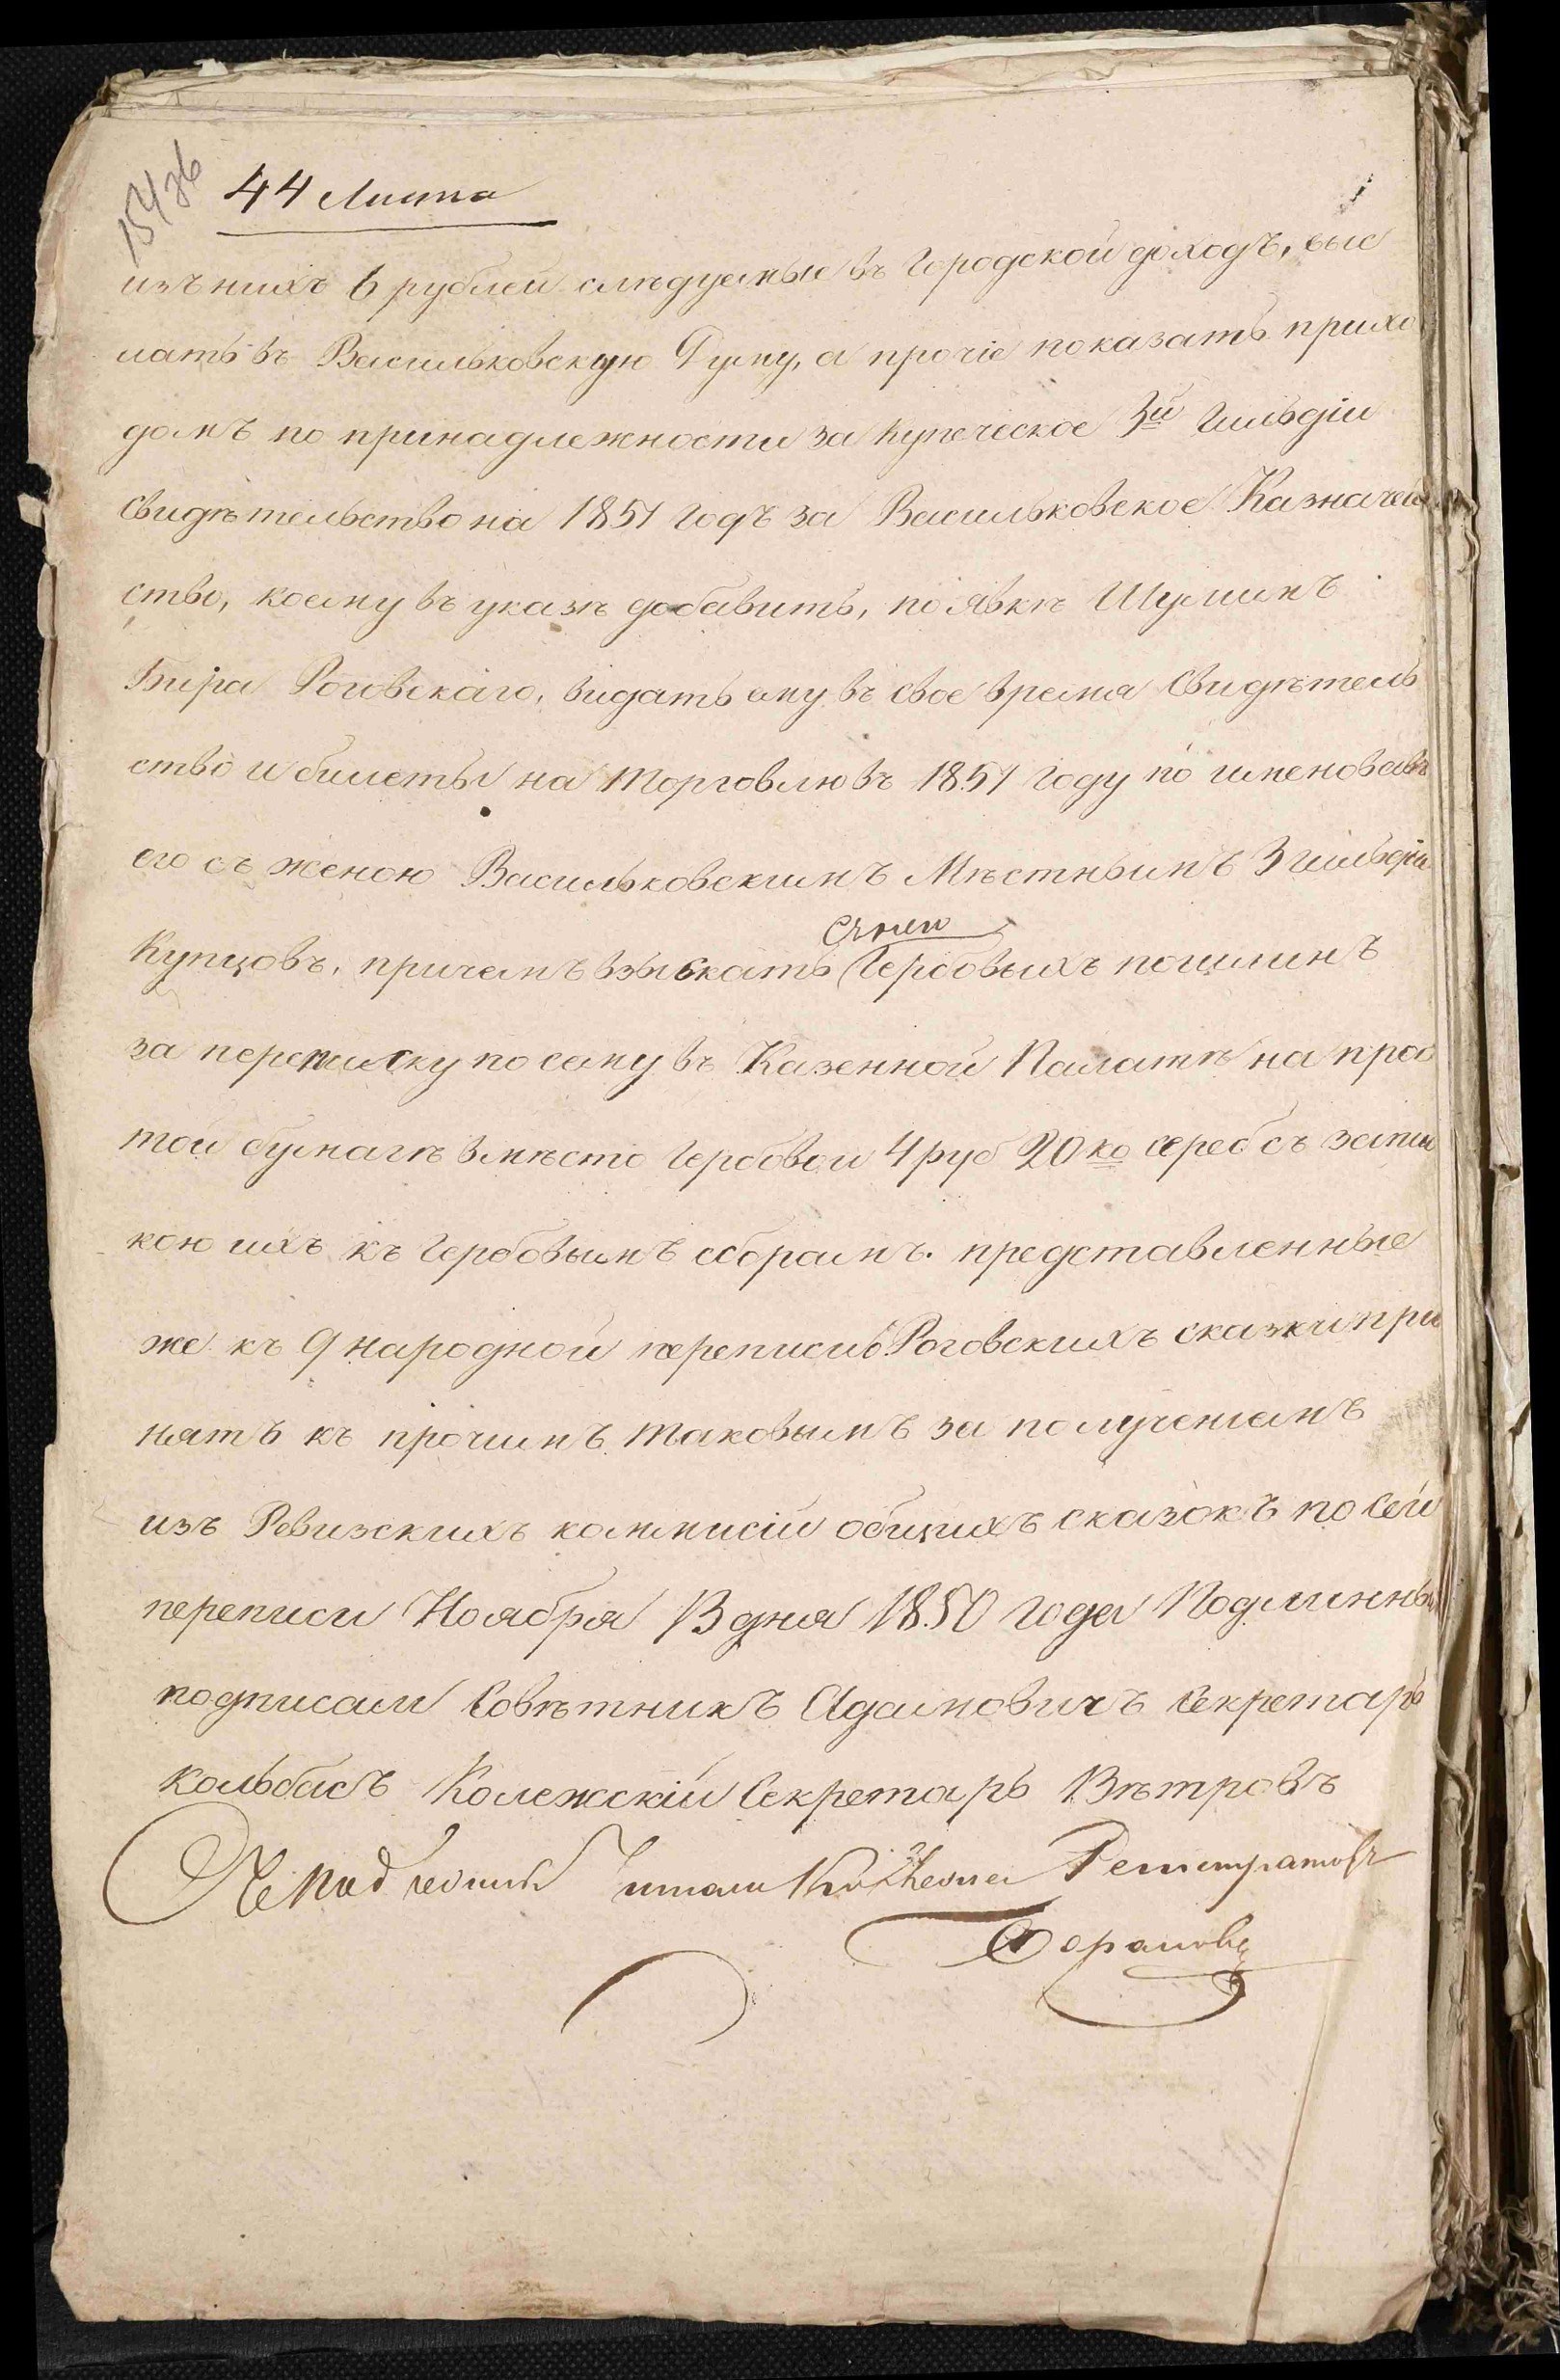 44 Листа
изъ нихъ 6 рублей следуемые въ городской доходъ, выс
лать въ Васильковскую Думу, а прочіе показать прихо
домъ по принадлежности за купеческое 3й гильдіи
свидѣтельство на 1851 годъ за Васильковское Казначей
ство, коему въ указѣ добавить, по явкѣ Шулимъ
Бера Роговскаго, видать ему въ свое время свидѣтель
ство и билеты на торговлю въ 1851 году по именовавъ
его съ женою Васильковскимъ Мѣстнымъ 3 гильдіи
Купцовъ, причемъ взыскать Гербовыхъ пошлинъ
за переписку по сему въ Казенной Палатѣ на прос
той бумагѣ вмѣсто гербовой 4 руб 20 ко сереб съ запис
кою ихъ къ гербовымъ сборамъ. представленные
же къ 9 народной переписи Роговскихъ сказки при
нять къ прочимъ таковымъ за полученіемъ
изъ Ревизскихъ коммисій общихъ сказокъ по сей
переписи Ноября 13 дня 1850 года Подлинный
подписали Совѣтникъ Адамовичъ Секретарь
Кольбасъ Колежскій Секретарь Вѣтровъ
Регистраторъ